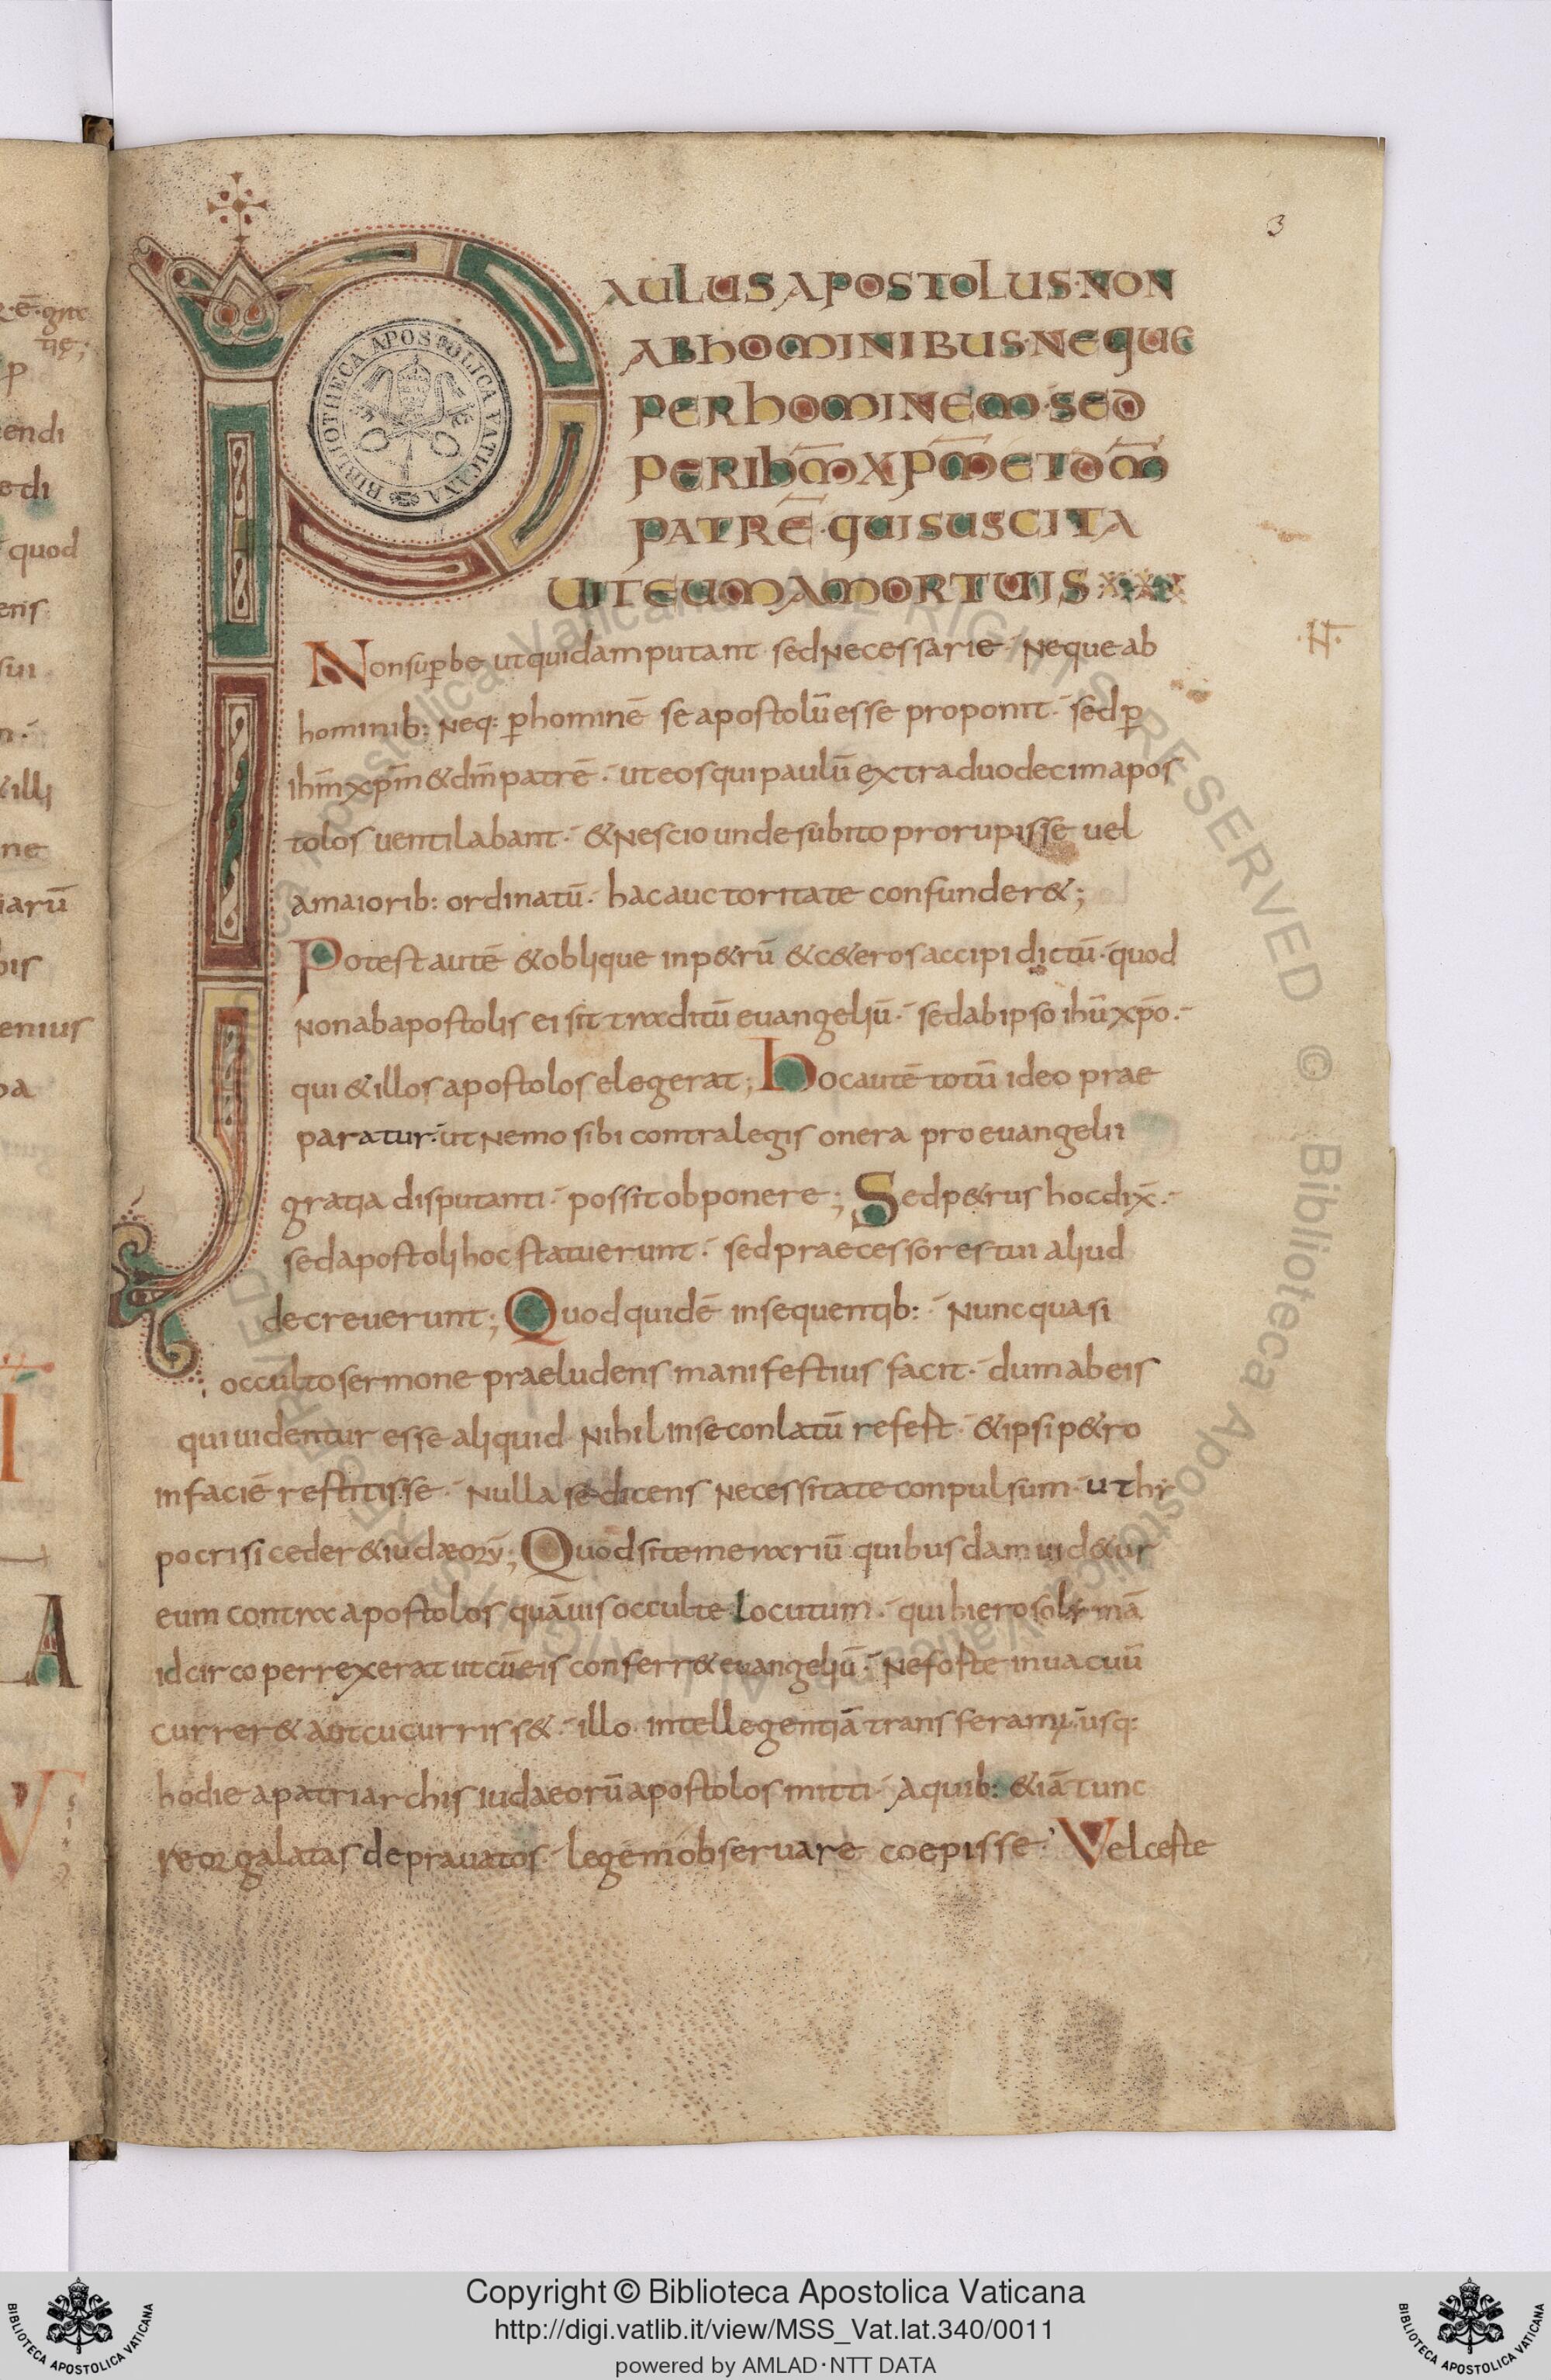 3
PAULUS APOSTOLUS·NON
AB hOMINIBUS·NEQUE
PER hOMINEM·SED
PER IhM̅ XPM̅ ET DM̅
PATRE̅·QUI SUSCITA
UIT EUM A MORTUIS
Non sup̲be ut quidam putant· sed necessarie· neque ab
·N̅·
hominib: neq: p̲ hominē se apostolū esse proponit· sed p̲
ihm̅ xpm̅ & dm̅ patrē· ut eos qui paulū extra duodecim apos
tolos uentilabant· & nescio unde subito prorupisse uel
a maiorib: ordinatū· hac auctoritate confunder&;
Potest autē & oblique in p&rū & c&eros accipi dictū· quod
non ab apostolis ei sit traditū euangeliū· sed ab ipso ihū xpō·
qui & illos apostolos elegerat; hoc autē totū ideo prae
paratur· ut nemo sibi contra legis onera pro euangelii
gratia disputanti· possit obponere; Sed p&rus hoc dix̄·
sed apostoli hoc statuerunt· sed praecessores tui aliud
decreuerunt; Quod quidē in sequentib:· nunc quasi
occulto sermone praeludens manifestius facit· dum ab eis
qui uidentur esse aliquid nihil in se conlatū refest· & ipsi p&ro
in faciē restitisse· nulla se dicens necessitate conpulsum· ut hy
pocrisi ceder& iudæoꝝ; Quod si temerariū quibusdam uid&ur
eum contra apostolos quāuis occulte locutum· qui hierosolymā
idcirco perrexerat ut cū eis conferr& euangeliū· ne foste in uacuū
currer& aut cucurriss&· illo intellegentiā transferamus· usq:
hodie a patriarchis iudaeorū apostolos mitti· A quib: &iā tunc
reor galatas deprauatos· legem obseruare coepisse· Vel ceste
BIBLIOTHECA APOSTOLICA VATICANA
Copyright © Biblioteca Apostolica Vaticana
http://digi.vatlib.it/view/MSS_Vat.lat.340/0011
powered by AMLAD·NTT DATA